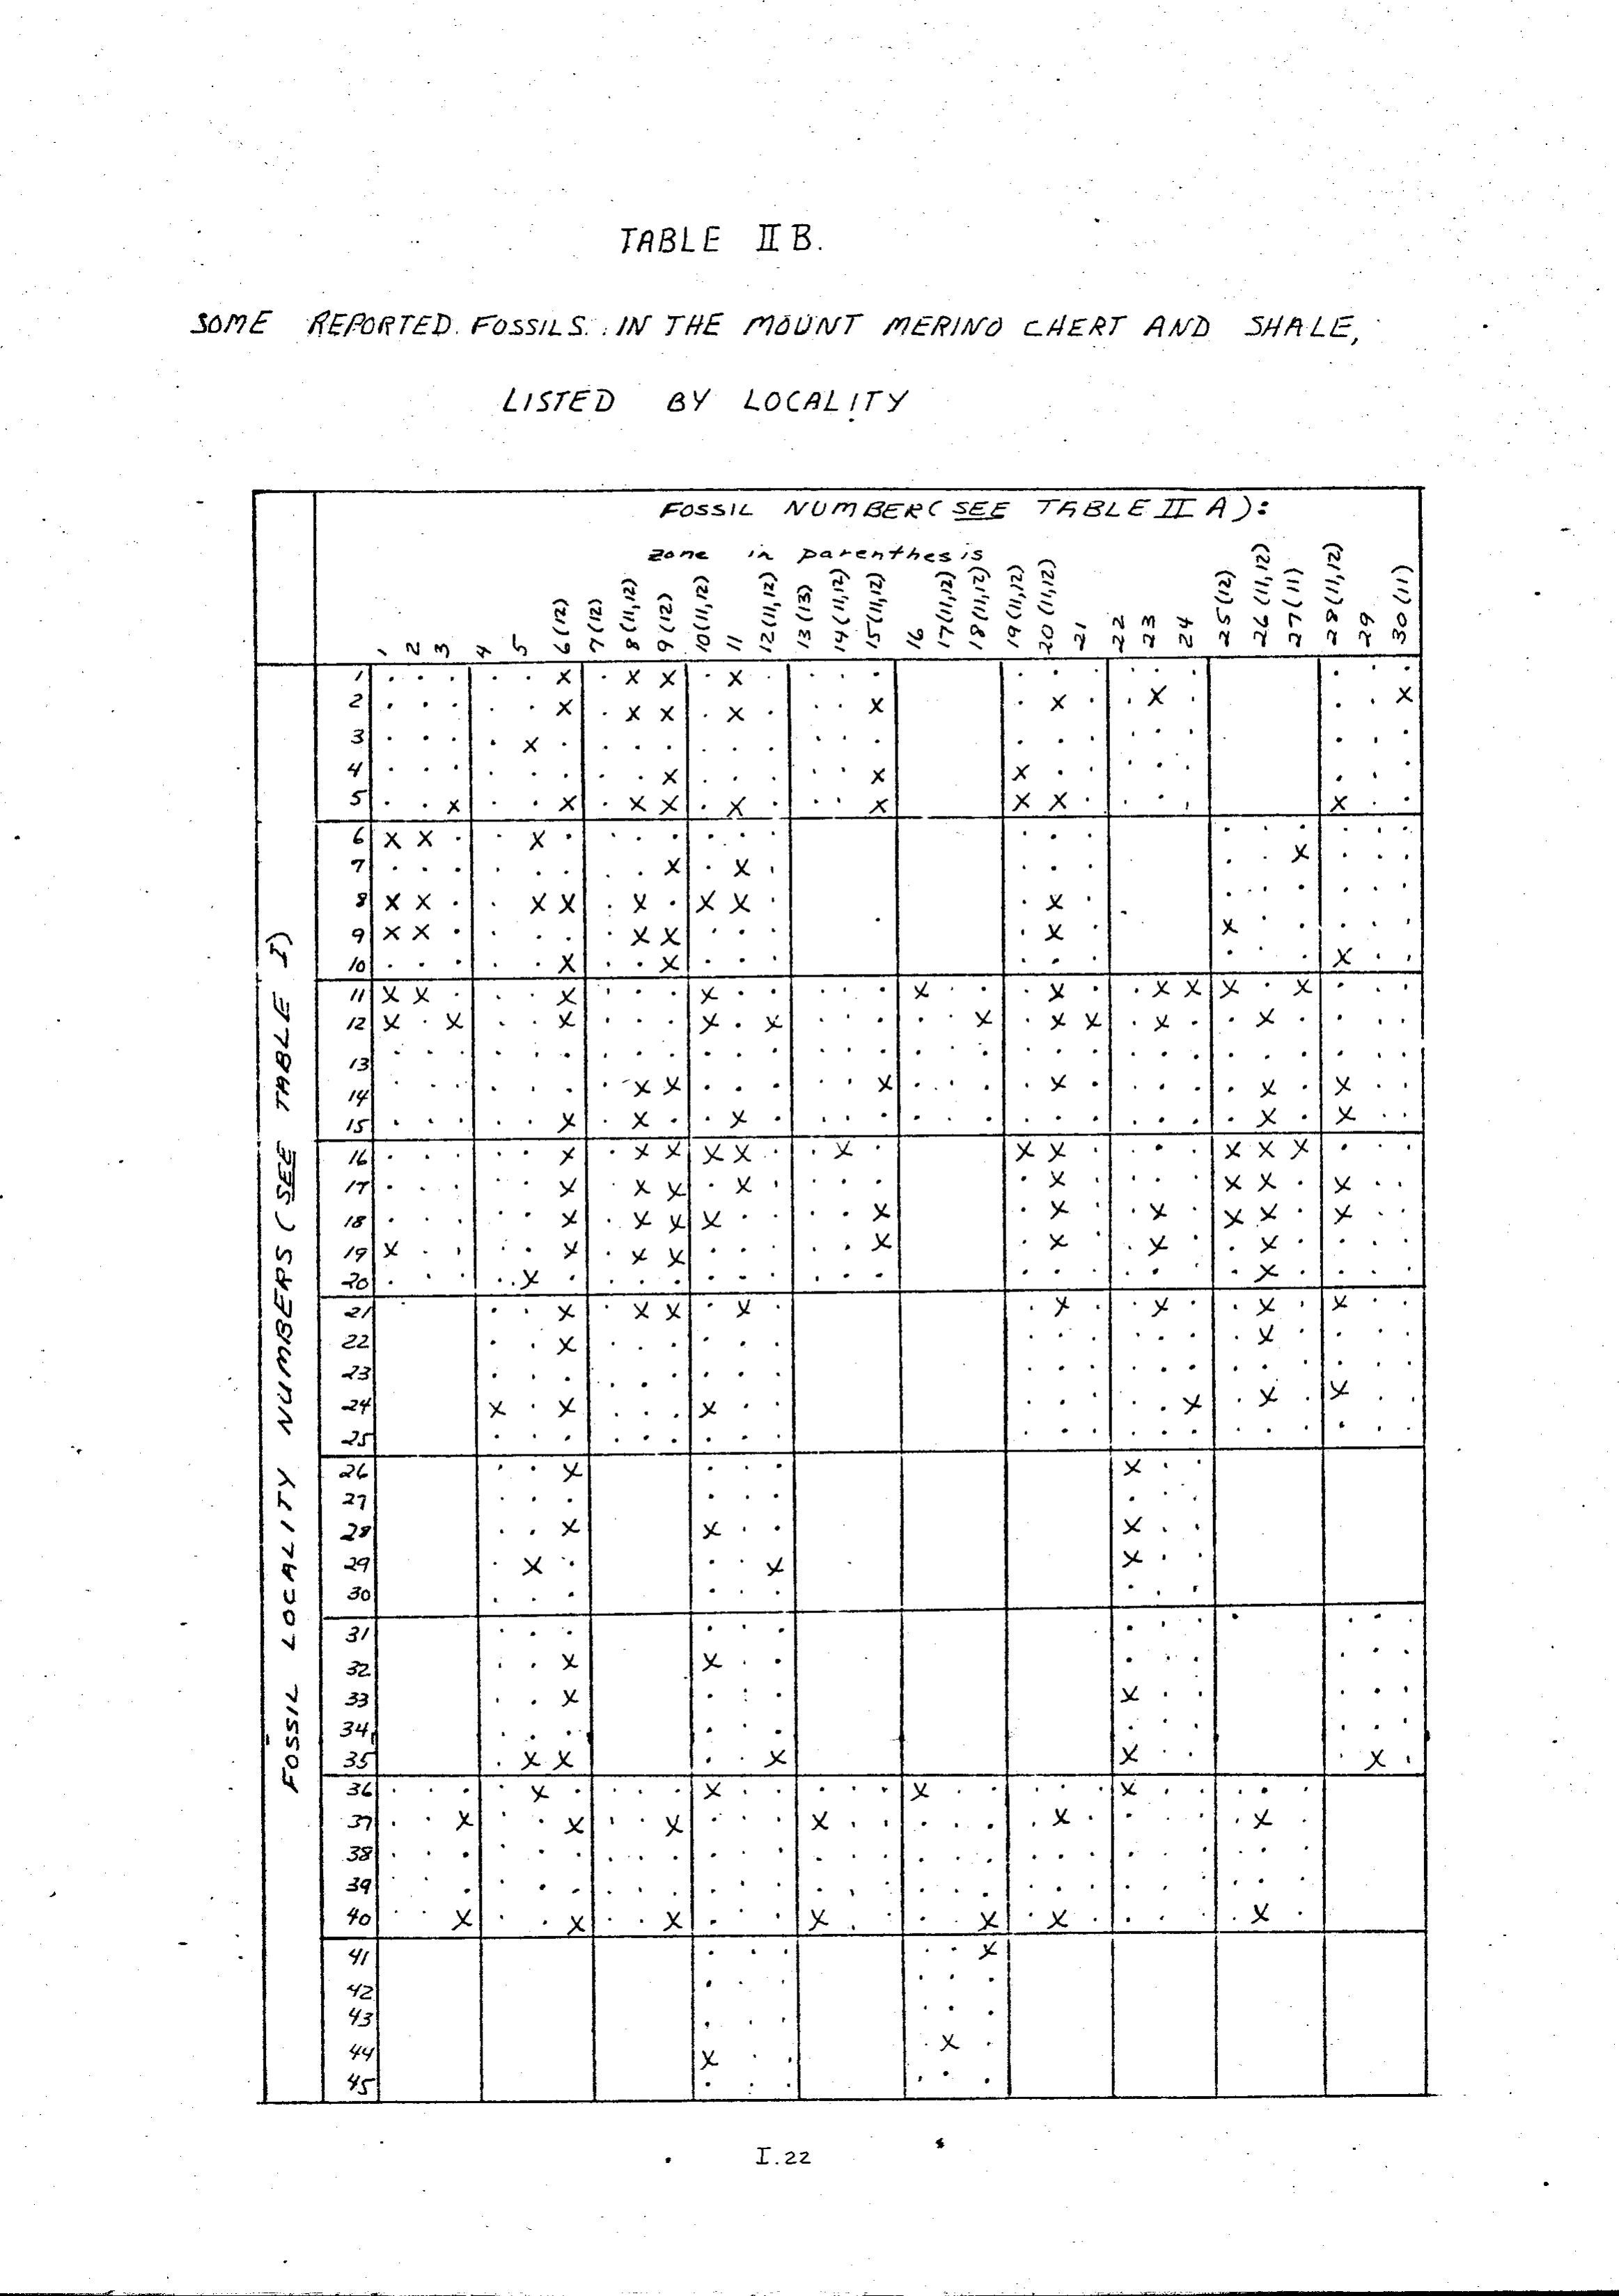 TABLE II B.
SOME REPORTED FOSSILS IN THE MOUNT MERINO CHERT AND SHALE,
LISTED BY LOCALITY
FOSSIL NUMBER (SEE TABLE II A):
zone in parenthesis
1 2 3 4 5 6(12) 7(12) 8(11,12) 9(12) 10(11,12) 11 12(11,12) 13(13) 14(11,12) 15(11,12) 16 17(11,12) 18(11,12) 19(11,12) 20(11,12) 21 22 23 24 25(12) 26(11,12) 27(11) 28(11,12) 29 30(11)
FOSSIL LOCALITY NUMBERS (SEE TABLE I)
1 X X X X
2 X X X X X X X X
3 X
4 X X X
5 X X X X X X X X X
6 X X X
7 X X X
8 X X X X X X X X
9 X X X X X X
10 X X X
11 X X X X X X X X X X
12 X X X X X X X X X X
13
14 X X X X X X
15 X X X X X
16 X X X X X X X X X X X
17 X X X X X X X X
18 X X X X X X X X X X
19 X X X X X X X X
20 X X
21 X X X X X X X X
22 X X
23
24 X X X X X X
25
26 X X
27
28 X X X
29 X X X
30
31
32 X X
33 X X
34
35 X X X X X
36 X X X X
37 X X X X X X
38
39
40 X X X X X X X
41 X
42
43
44 X X
45
I.22